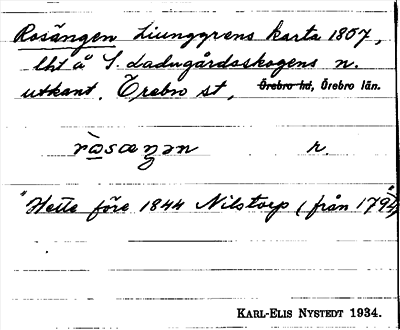 Rosängen Liunggrens karta 1857,
lht å S. Ladugårdsskogens n.
utkant. Örebro st, Örebro hd, Örebro län.
ròsæŋən r.
"Hette före 1844 Nilstorp (från 1794)
KARL-ELIS NYSTEDT 1934.